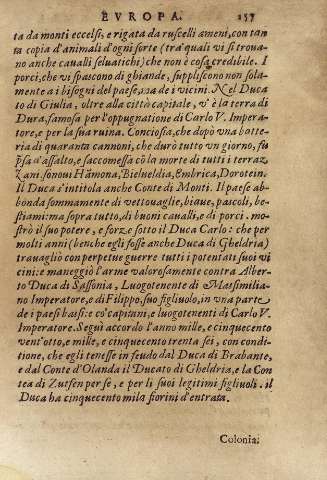 EVROPA. 157
ta da monti eccelsi, e rigata da ruscelli ameni, con tan
ta copia d'animali d'ogni sorte (tra' quali vi si troua-
no anche caualli seluatichi) che non è cosa credibile. I
porci, che vi si pascono di ghiande, suppliscono non sola-
mente a i bisogni del paese, ma de i vicini. Nel Ducato
di Giulia, oltre alla città capitale, v'è la terra di
Dura, famosa per l'oppugnatione di Carlo V. Impera-
tore, e per la sua ruina. Conciosia, che dopò una batte-
ria di quaranta cannoni, che durò tutto vn giorno, fu
p̃sa a' assalto, e saccomessa cō la morte di tutti i terraz
zani. sonoui Hāmona, Bielueldia, Embrica, Dorotein.
Il Duca s'intitola anche Conte di Monti. Il paese ab-
bonda sommamente di vettouaglie, biaue, pascoli, be-
stiami: ma sopra tutto, di buoni caualli, e di porci. mo-
strò il suo potere, e forze sotto il Duca Carlo: che per
molti anni (benche egli fosse anche Duca di Gheldria)
trauagliò con perpetue guerre tutti i potentati suoi vi
cini: e maneggiò l'arme valorosamente contra Alber-
to Duca di Sassonia, Luogotenente di Massimilia-
no Imperatore, e di Filippo, suo figliuolo, in una parte
de i paesi bassi: e co' capitani, e luogotenenti di Carlo V.
Imperatore. Seguì accordo l'anno mille, e cinquecento
vent'otto, e mille, e cinquecento trenta sei, con condi-
tione, che egli tenesse in feudo dal Duca di Brabante,
e dal Conte d'Olanda il Ducato di Gheldria, e la Con
tea di Zutfen per se, e per li suoi legitimi figliuoli. il
Duca ha cinquecento mila fiorini d'entrata.
Colonia.